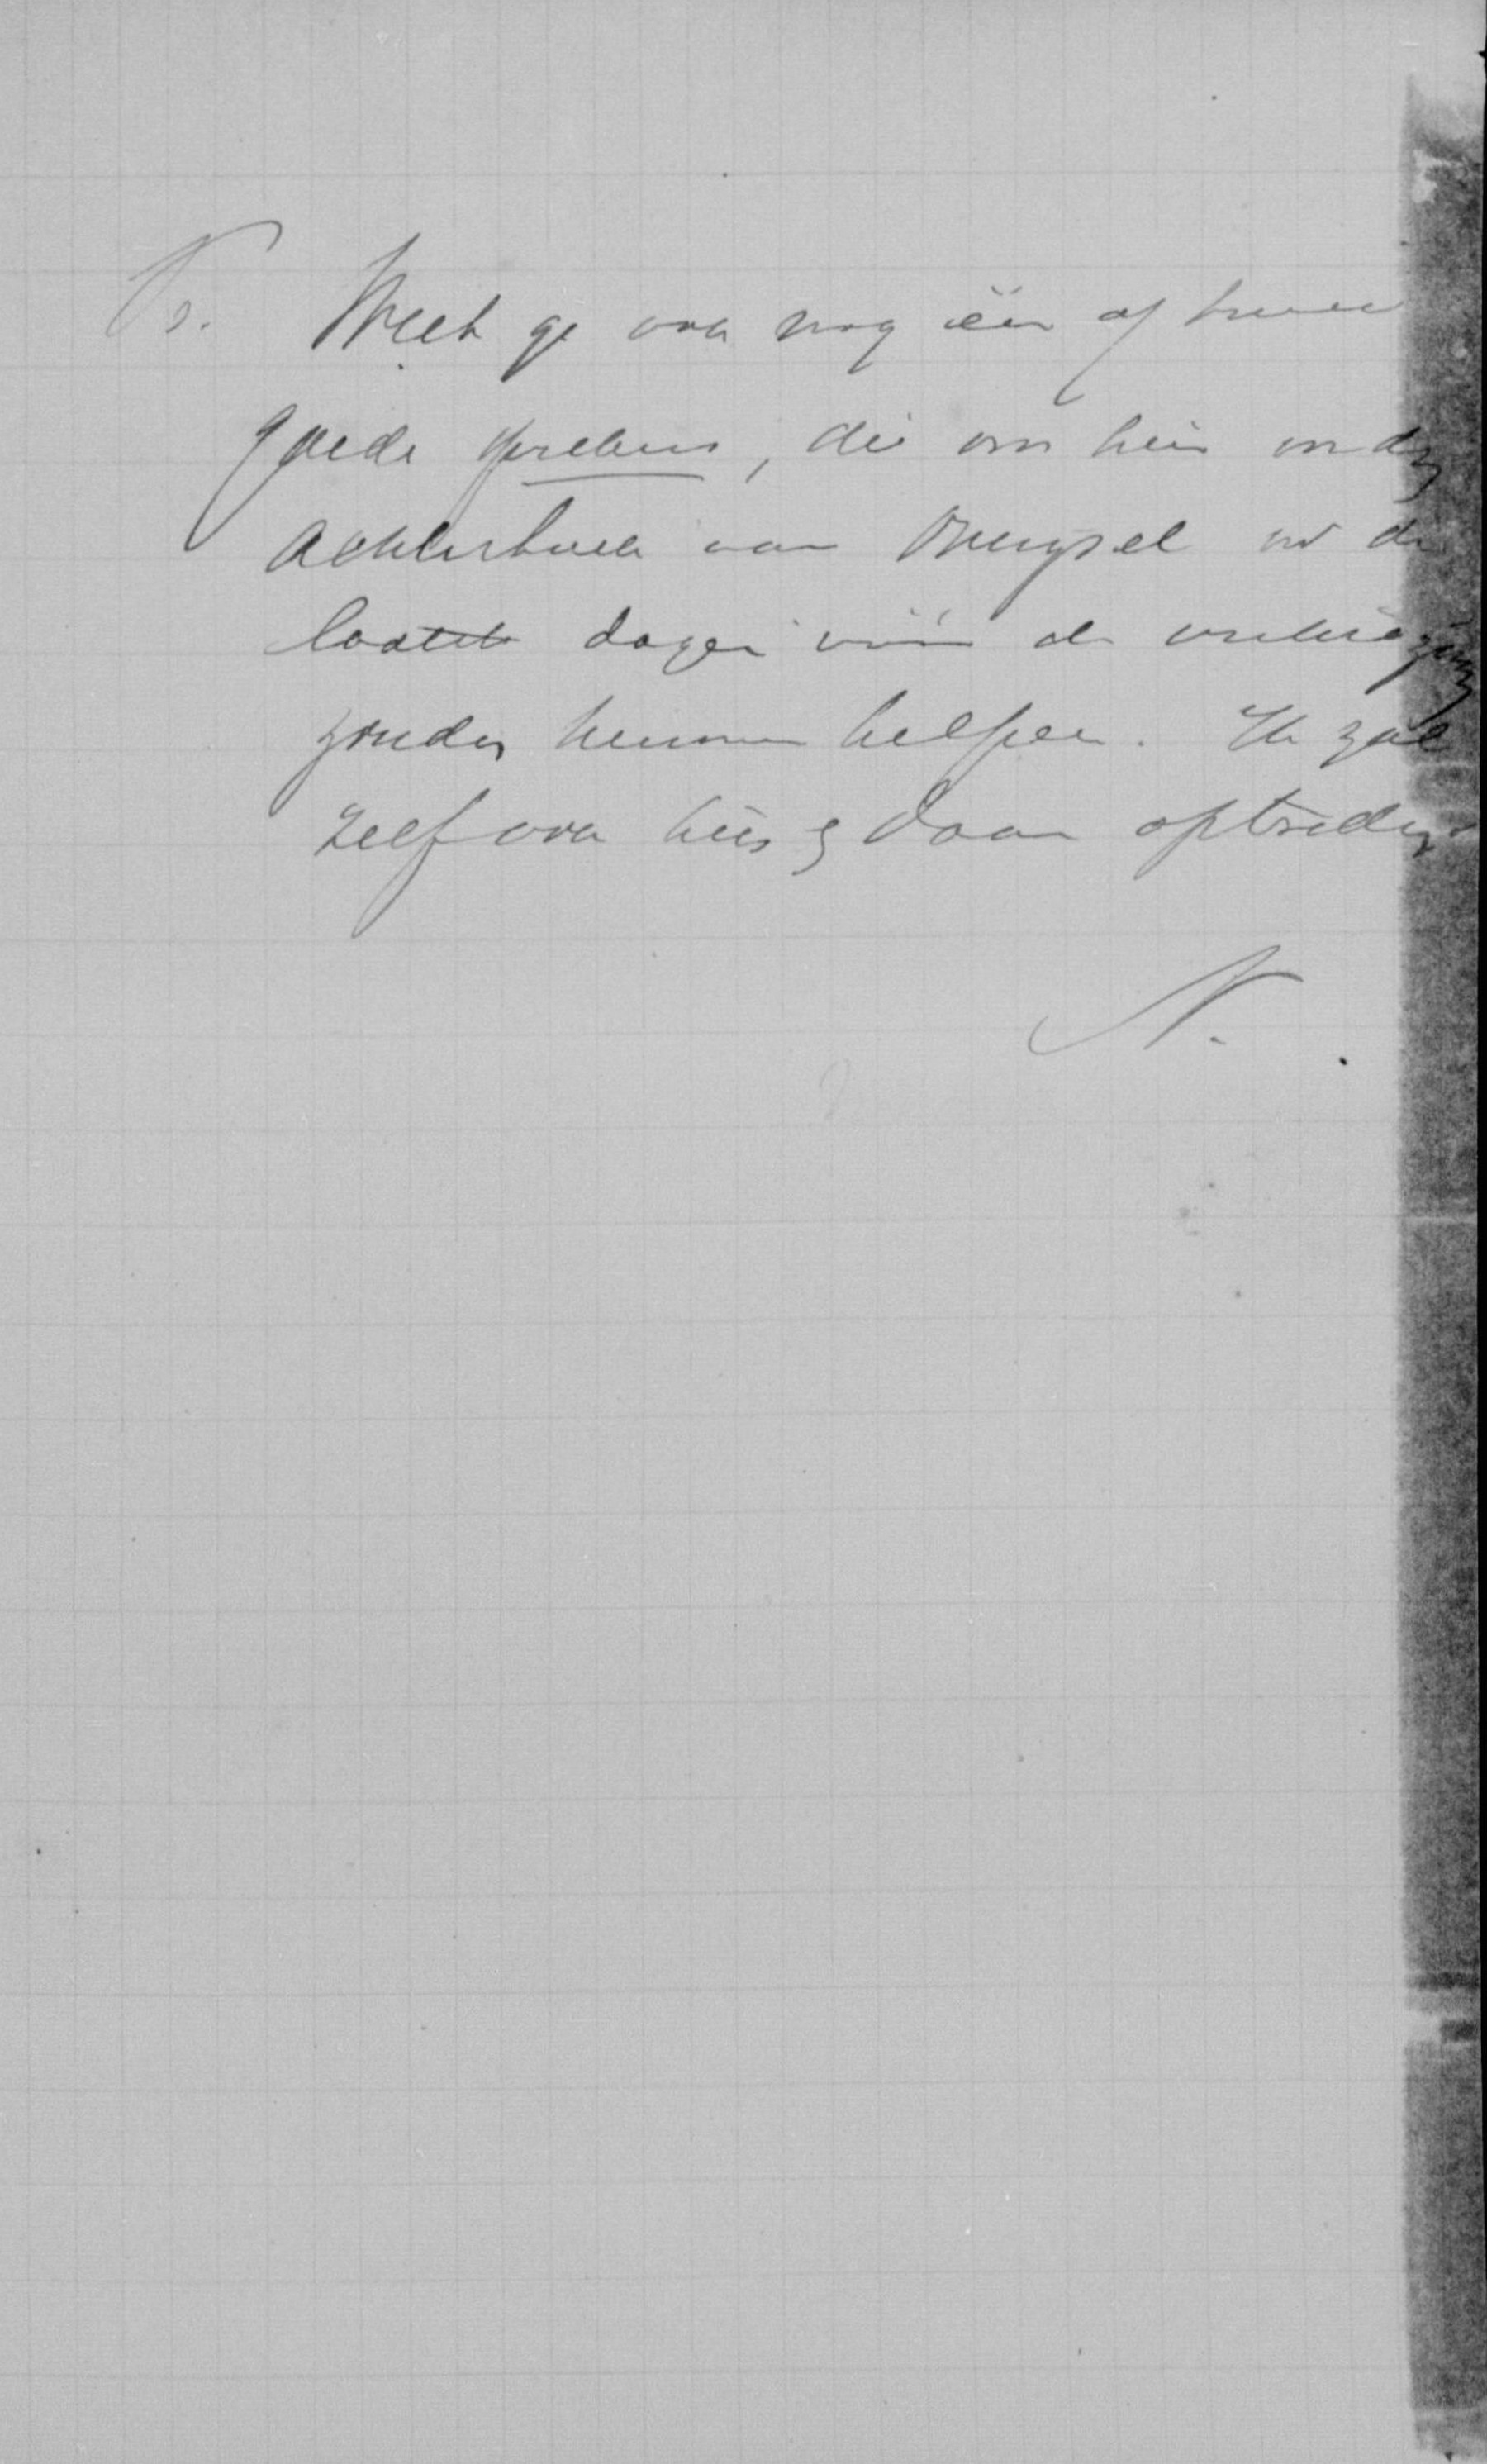 Ps. Weet ge ook nog één of twee
goede sprekers, die ons hier in den
Achterhoek van Overijsel in de
laatste dagen vóór de verkiezing
zouden kunnen helpen. Ik zal
zelf ook hier & daar optreden
N.